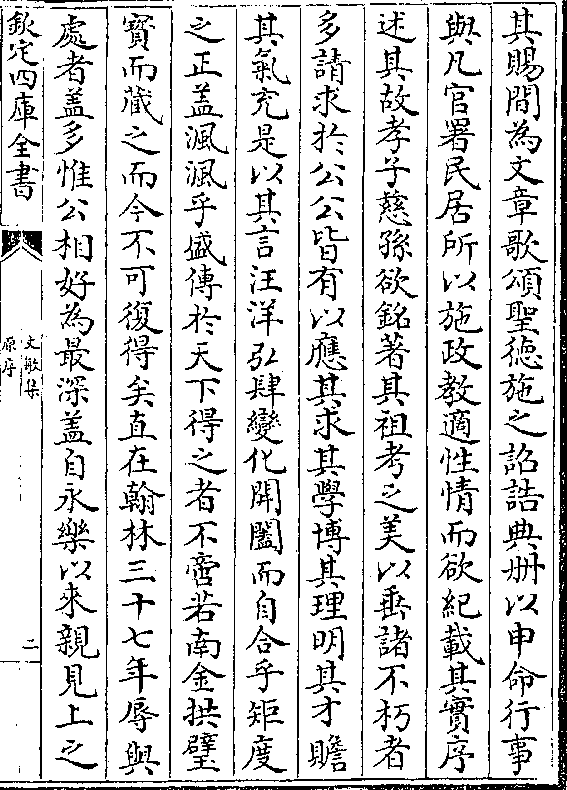 其賜間為文章歌頌聖德施之詔誥典册以申命行事
與凡官署民居所以施政教適性情而欲紀載其實序
述其故孝子慈孫欲銘著其祖考之美以垂諸不朽者
多請求於公公皆有以應其求其學博其理明其才贍
其氣充是以其言汪洋弘肆變化開闔而自合乎矩度
之正蓋渢渢乎盛傳於天下得之者不啻若南金拱璧
寶而藏之而今不可復得矣直在翰林三十七年辱與
處者蓋多惟公相好為最深蓋自永樂以來親見上之
欽定四庫全書
文敏集
原序
二